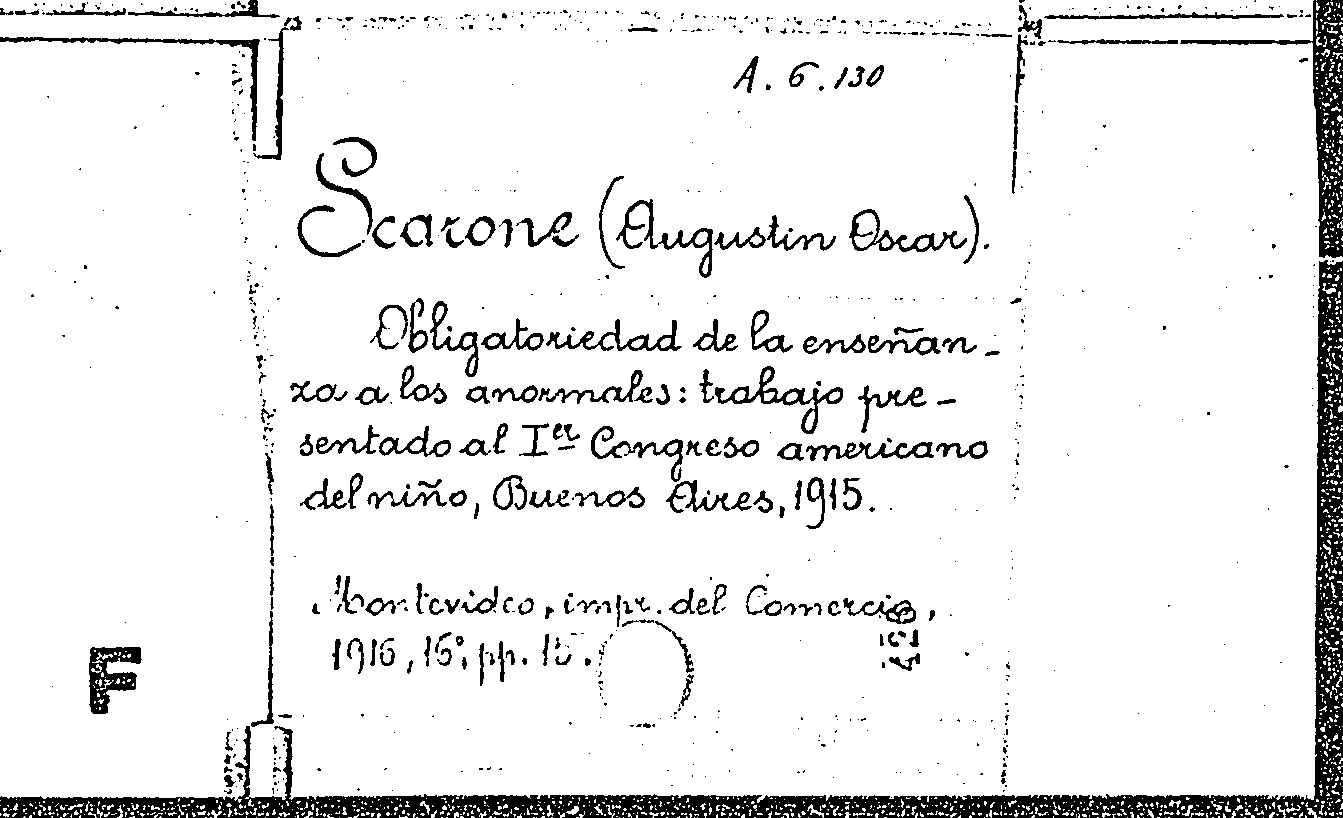 A. 6. 130
Scarone (Augustin Oscar).
Obligatoriedad de la enseñan-
za a los anormales: trabajo pre-
sentado al I er Congreso americano
del niño, Buenos Aires, 1915.
Montevideo, impr. del Comercio,
1916, 16°, pp. 15.
F